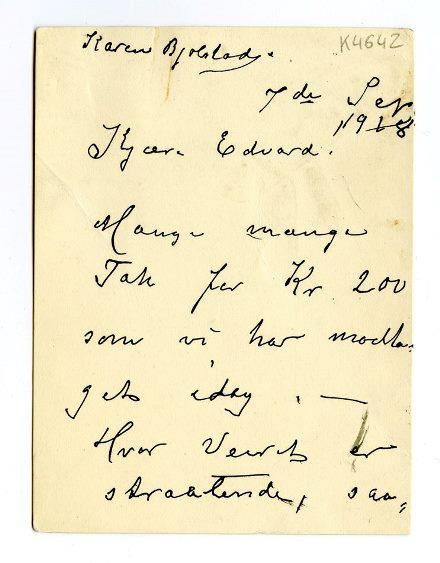 Karen Bjølstad.
K4642
7de Sep
1918
Kjære Edvard.
Mange mange
Tak for Kr 200
som vi har modta-
get idag. —
Hvor Veiret er
straalende, saa,